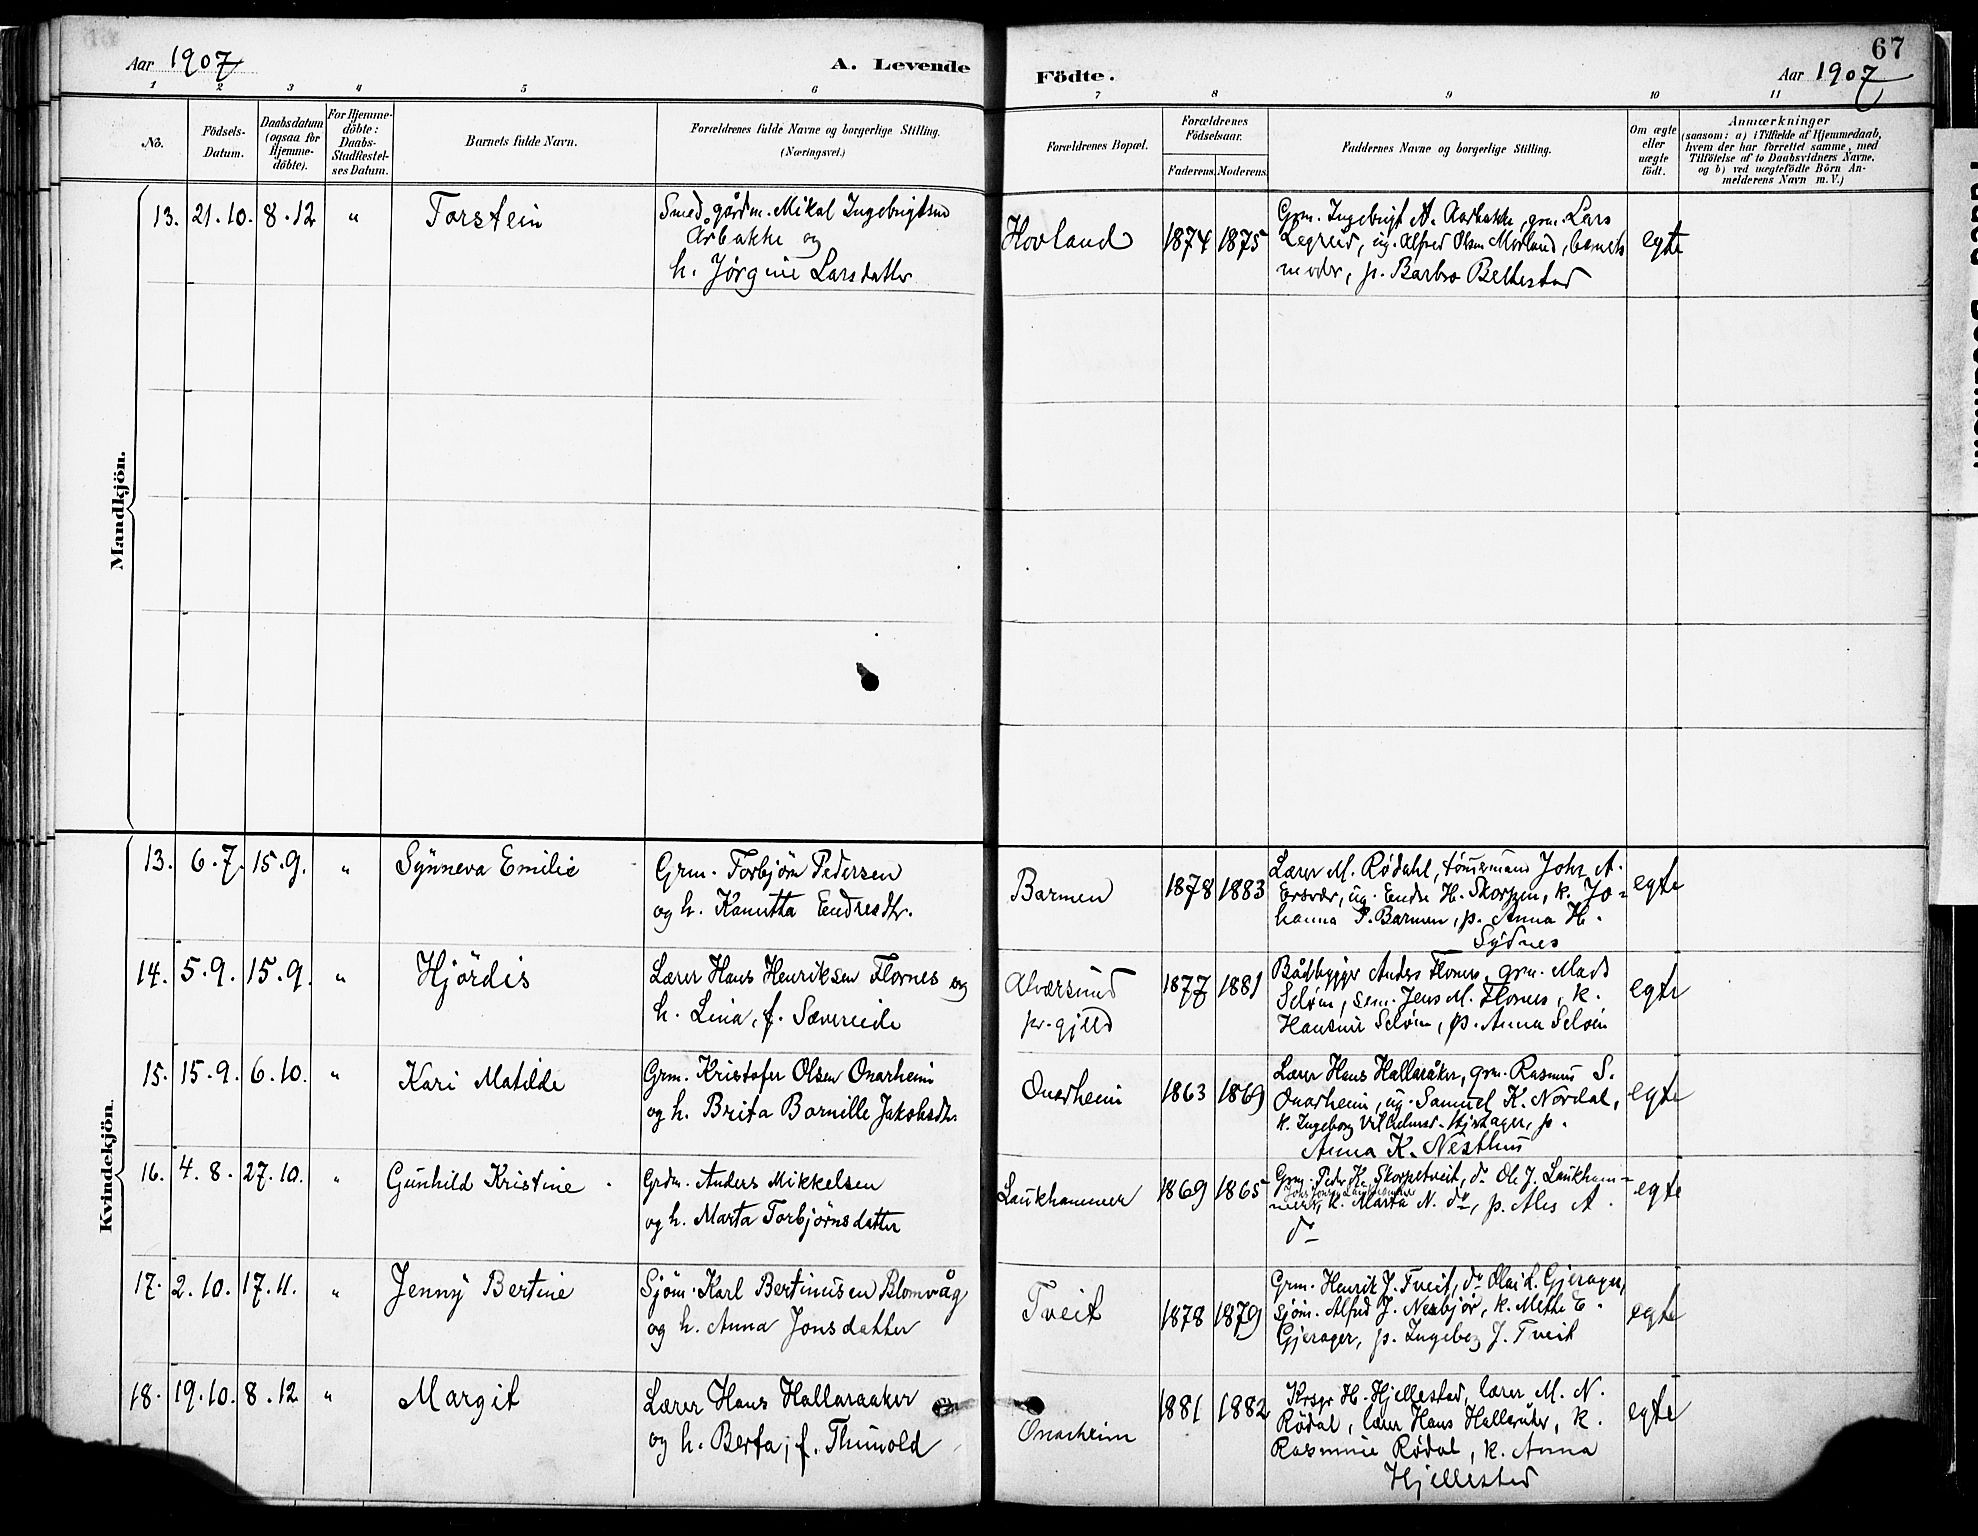 Aar 1907
A. Levende
Födte.
67
Aar 1907
1 2 3 4 5 6 7 8 9 10 11
No.
Födsels-
Datum.
Daabsdatum
(ogsaa for
Hjemme-
döbte).
For Hjemme-
döbte:
Daabs-
Stadfæstel-
ses Datum.
Barnets fulde Navn.
Forældrenes fulde Navne og borgerlige Stilling.
(Næringsvei.)
Forældrenes Bopæl.
Forældrenes
Födselsaar.
Faderens. Moderens.
Faddernes Navne og borgerlige Stilling.
Om ægte
eller
uægte
födt.
Anmærkninger
(saasom: a) i Tilfælde af Hjemmedaab,
hvem der har forrettet samme, med
Tilföielse af to Daabsvidners Navne,
og b) ved uægtefödte Börn An-
melderens Navn m. V.)
Mandkjön.
13. 21.10. 8.12 " Torstein
Smed, gårdm. Mikal Ingebrigtsen
Årbakke og
h. Jørgine Larsdatter
Hovland 1874 1875
Grm. Ingebrigt A. Aarbakke, grm. Lars
Legreid, ug. Alfred Olsen Morland, barnets
moder, p. Barbro Beltestad
egte
Kvindekjön.
13. 6.7. 15.9. " Synneva Emilie
Grm. Torbjørn Pedersen
og h. Kanutta Endresdtr.
Barmen 1878 1883
Lærer M. Rødahl, tømermand Johs A.
Ersvær, ug. Endre H. Skorpen, k. Jo-
hanna P. Barmen, p. Anna H.
Sydnes
egte
14. 5.9. 15.9. " Hjördis
Lærer Hans Henriksen Flornes og
h. Lina, f. Sævereide
Alværsund
pr.gjeld
1877 1881
Bådbygger Anders Flornes, grm. Mads
Seløen, sem. Jens M. Flornes, k.
Hansine Seløen, p. Anna Seløen
egte
15. 15.9. 6.10. " Kari Matilde
Grm. Kristofer Olsen Onarheim
og h. Brita Bornille Jakobsdtr.
Onarheim 1863 1869
Lærer Hans Hallaråker, grm. Rasmus S.
Onarheim, ug. Samuel K. Nordal,
k. Ingeborg Vilhelmsd. Gjerager, p.
Anna K. Nesthus
egte
16. 4.8. 27.10. " Gunhild Kristine
Grdm. Anders Mikkelsen
og h. Marta Torbjørnsdatter
Laukhammer 1869 1865
Grm. Peder K. Skorpetveit, do Ole J. Laukham-
mer, k. Marta N. do, p. Ales A.
do
egte
17. 2.10. 17.11. " Jenny Bertine
Sjøm. Karl Bertinusen Blomvåg
og h. Anna Jonsdatter
Tveit 1878 1879
Grm. Henrik J. Tveit, do Olai L. Gjerager,
sjøm. Alfred J. Nesbjør, k. Methe E.
Gjerager, p. Ingeborg J. Tveit
egte
18. 19.10. 8.12 " Margit
Lærer Hans Hallaraaker
og h. Berta, f. Thunold
Onarheim 1881 1882
Krsgr H. Hjellestad, lærer M. N.
Rödal, lærer Hans Hallaråker, k.
Rasmine Rødal, k. Anna
Hjellestad
egte